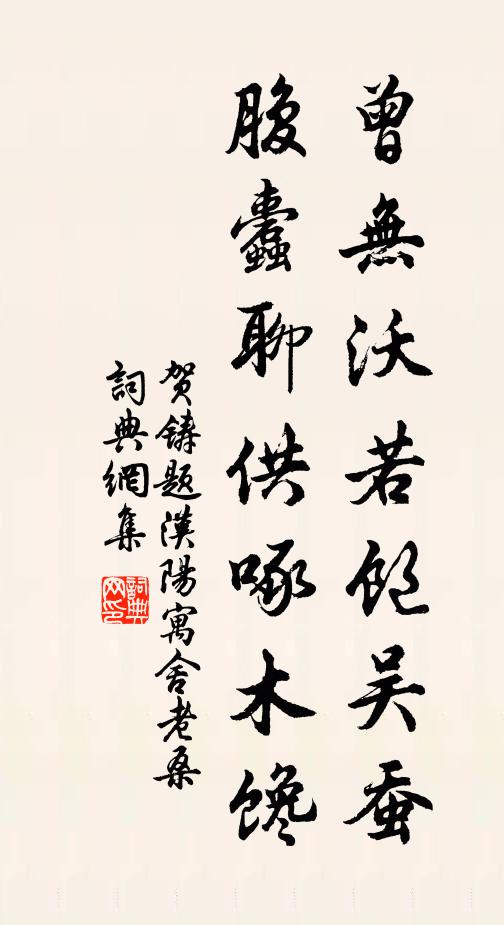 曾無沃若飽吴蚕
腹蠹聊供啄木馋
贺鑄题漢陽寓舍老桑
詞典網集
詞典网印